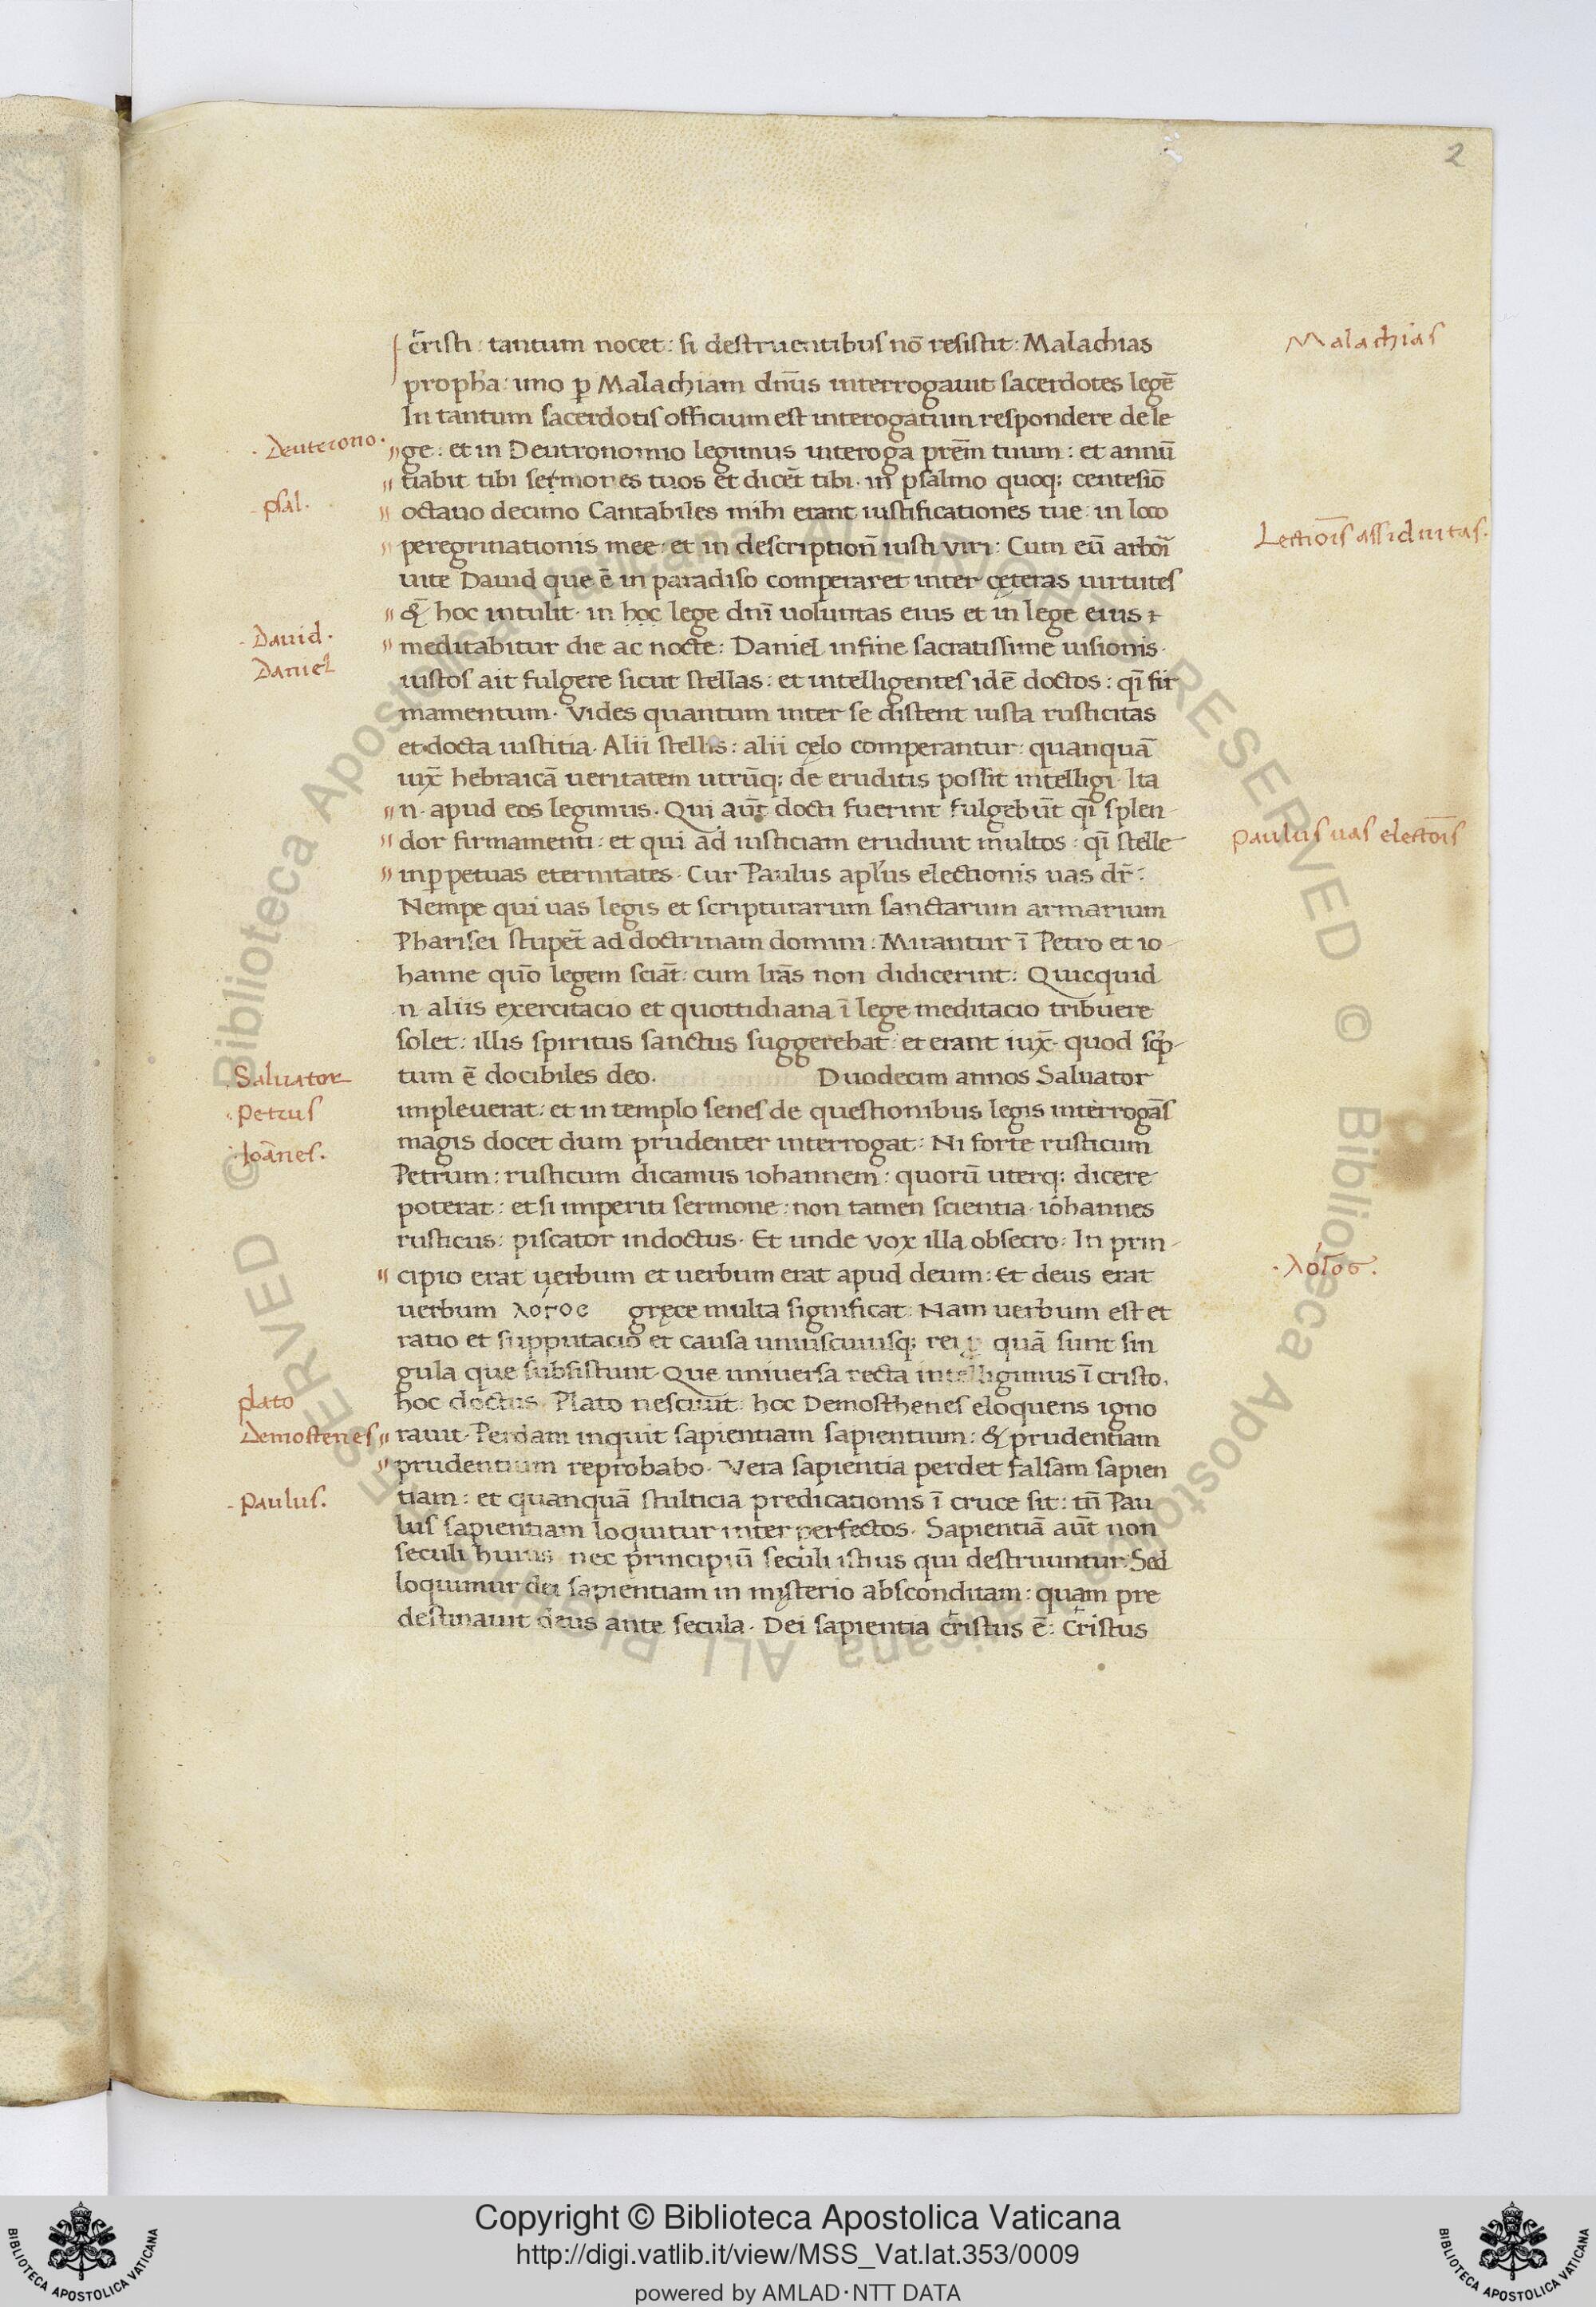 2
c̄risti : tantum nocet : si destruentibus nō resistit : Malachias
Malachias
propħa : imo ꝑ Malachiam dn̄us interrogauit sacerdotes legē
In tantum sacerdotis officium est interogatum respondere de le
Deuterono.
ge : et in Deutronomio legimus interoga prēm tuum : et annū
tiabit tibi sermones tuos et dicet̄ tibi · in psalmo quoq; centesiō
psal.
octauo decimo Cantabiles mihi erant iustificationes tue · in loco
Lectiōis assiduitas.
peregrinationis mee · et in description̄ iusti viri : Cum eū arbori
uite Dauid que ē in paradiso comperaret inter cęteras uirtutes
& hoc intulit · in hoc lege dnī uoluntas eius et in lege eius
Dauid.
meditabitur die ac nocte : Daniel in fine sacratissime uisionis ·
Daniel
iustos ait fulgere sicut stellas : et intelligentes id ē doctos : qī fir
mamentum · Vides quantum inter se distent iusta rusticitas
et docta iustitia · Alii stellis : alii cęlo comperantur : quanquā
iux̄ hebraicā ueritatem utrūq; de eruditis possit intelligi · Ita
n · apud eos legimus · Qui aūt docti fuerint fulgebūt qī splen-
dor firmamenti : et qui ad iusticiam erudiunt multos : qī stelle
Paulus uas electōis
in ꝑpetuas eternitates · Cur Paulus apl'us electionis uas dr̄ :
Nempe qui uas legis et scripturarum sanctarum armarium
Pharisei stupet̄ ad doctrinam domini : Mirantur ī Petro et io-
hanne quō legem sciāt : cum lrās non didicerint : Quicquid
n aliis exercitacio et quottidiana ī lege meditacio tribuere
solet : illis spiritus sanctus suggerebat : et erant iux̄ · quod scp-
Saluator
tum ē docibiles deo. Duodecim annos Saluator
Petrus
impleuerat : et in templo senes de questionibus legis interrogās
magis docet dum prudenter interrogat : Ni forte rusticum
Ioānes.
Petrum : rusticum dicamus iohannem : quorū uterq; dicere
poterat : et si imperiti sermone : non tamen scientia · iohannes
rusticus : piscator indoctus · Et unde vox illa obsecro : In prin-
λόγος.
cipio erat uerbum et uerbum erat apud deum : Et deus erat
uerbum λογος gręce multa significat : Nam uerbum est et
ratio et supputacio et causa uniuscuiusq; rei ꝑ quā sunt sin
gula que subsistunt · Que universa recta intelligimus ī cristo.
plato
hoc doctus Plato nesciuit : hoc Demosthenes eloquens igno
Demostenes
rauit · Perdam inquit sapientiam sapientium : & prudentiam
prudentium reprobabo · Vera sapientia perdet falsam sapien
Paulus.
tiam : et quanquā stulticia predicationis ī cruce sit : tn̄ Pau
lus sapientiam loquitur inter perfectos · Sapientiā aūt non
seculi huius nec principiū seculi istius qui destruuntur : Sed
loquimur dei sapientiam in mysterio absconditam : quam pre
destinauit deus ante secula · Dei sapientia c̄ristus ē : C̄ristus
© Biblioteca Apostolica Vaticana ALL RIGHTS RESERVED
© Biblioteca Apostolica Vaticana ALL RIGHTS RESERVED
Copyright © Biblioteca Apostolica Vaticana
http://digi.vatlib.it/view/MSS_Vat.lat.353/0009
powered by AMLAD·NTT DATA
BIBLIOTECA APOSTOLICA VATICANA
BIBLIOTECA APOSTOLICA VATICANA